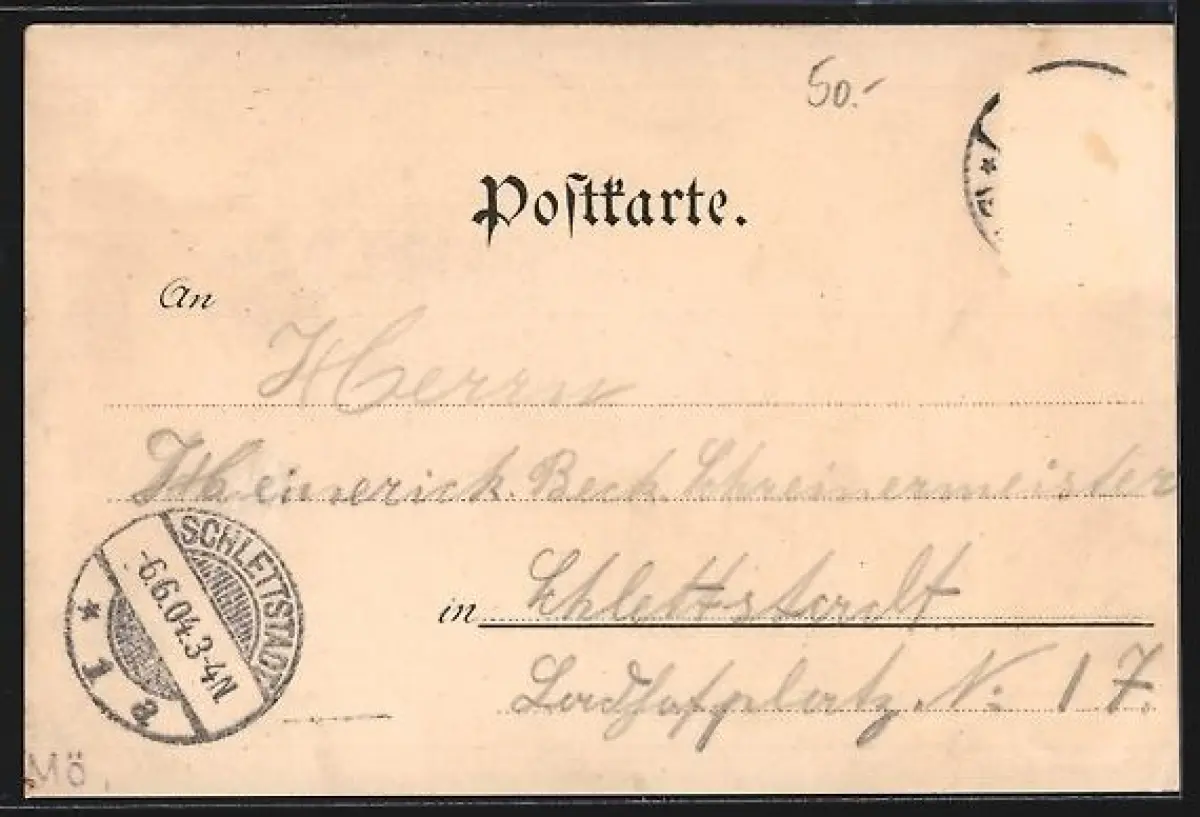 50.-
Poſtkarte.
An
Herrn
Heinerich. Beck. Schreinermeister
SCHLETTSTADT
-6.6.04.3-4N
* 1 a
in Schlettstadt
N: 17.
Mö.